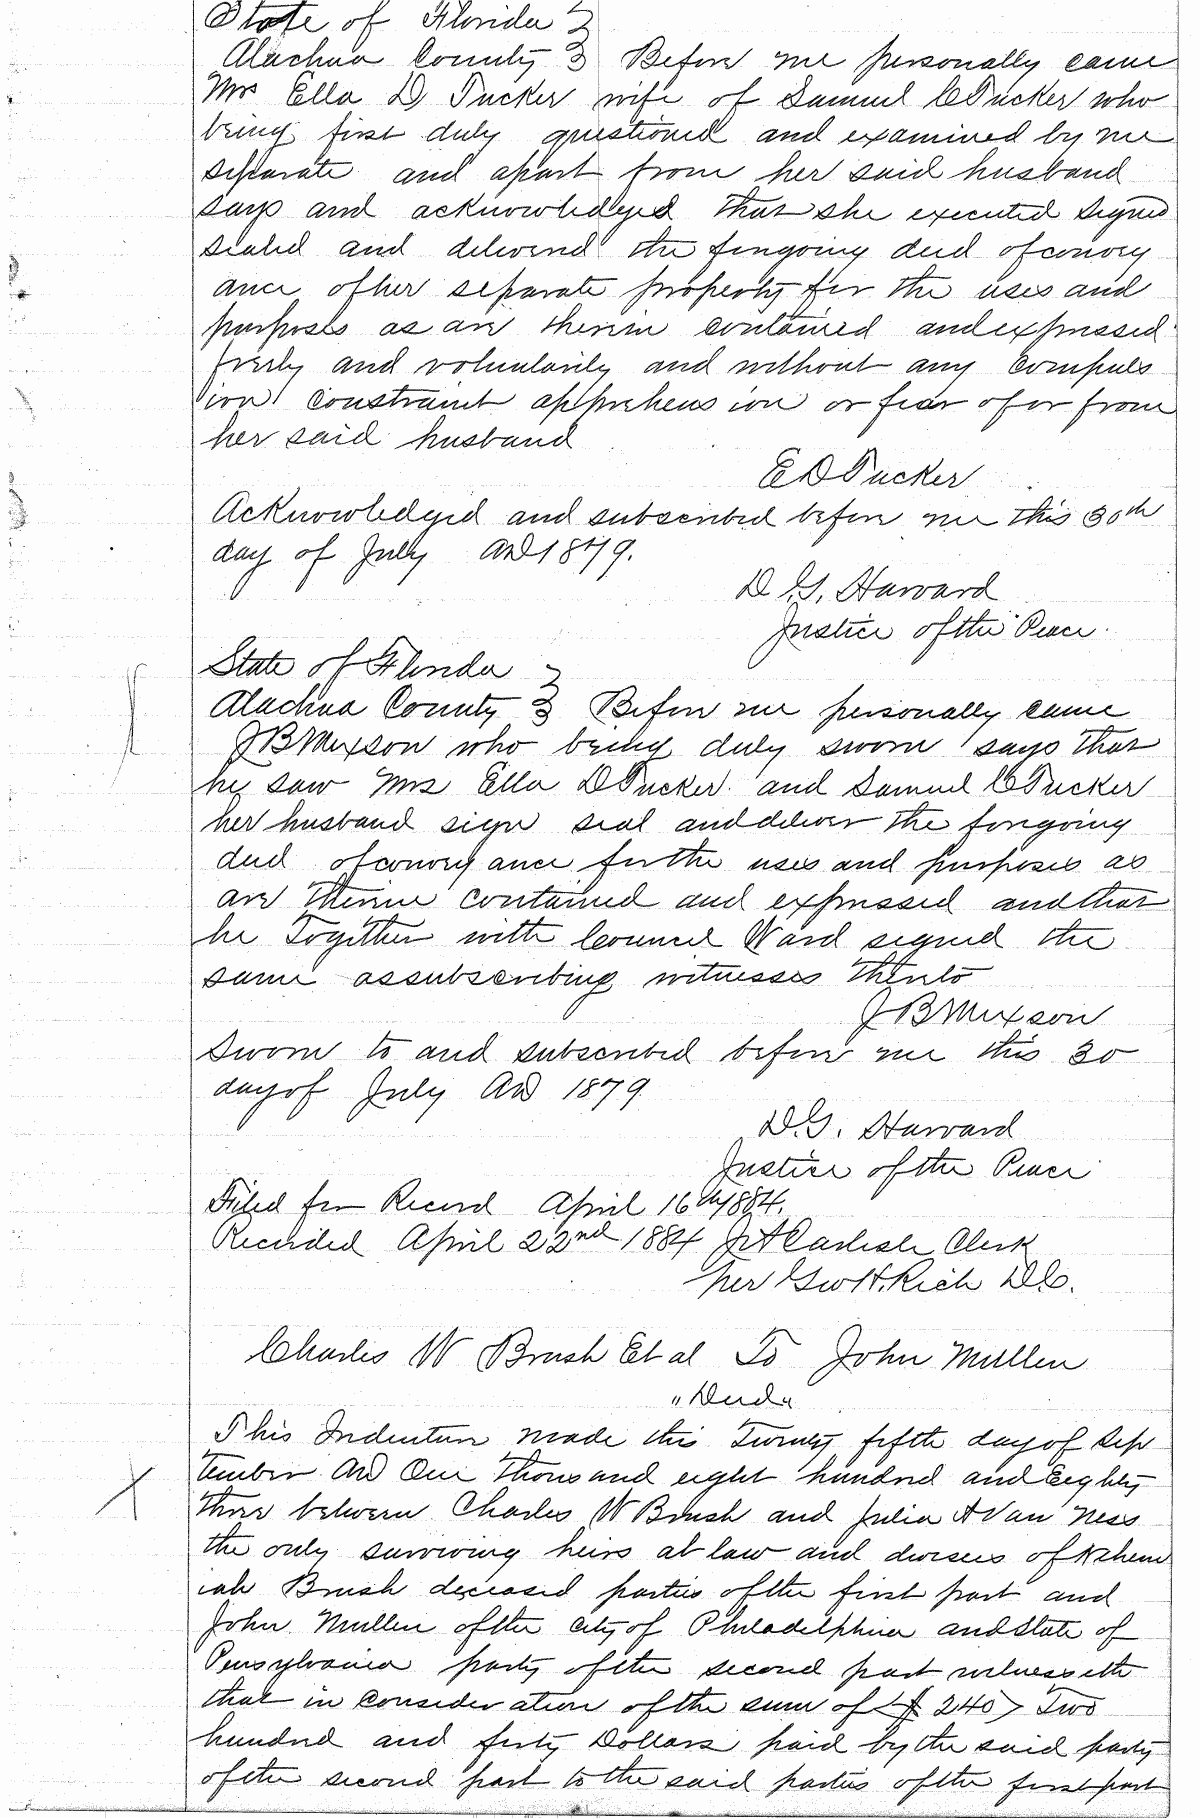 State of Florida }
Alachua County } Before me personally came
Mrs Ella D Tucker wife of Samuel C Tucker who
being first duly questioned and examined by me
separate and apart from her said husband
says and acknowledged that she executed signed
sealed and delivered the foregoing deed of convey
ance of her separate property for the uses and
purposes as are therein contained and expressed
freely and voluntarily and without any compuls
ion constraint apprehension or fear of or from
her said husband
E D Tucker
Acknowledged and subscribed before me this 30th
day of July AD 1879.
D. G. Harvard
Justice of the Peace.
State of Florida }
Alachua County } Before me personally came
J B Mixson who being duly sworn says that
he saw Mrs Ella D Tucker and Samuel C Tucker
her husband sign seal and deliver the foregoing
deed of conveyance for the uses and purposes as
are therine contained and expressed and that
he Together with Council Ward signed the
same as subscribing witnesses thereto
J B Mixson
Sworn to and subscribed before me this 30
day of July AD 1879
D. G. Harvard
Justice of the Peace
Filed for Record April 16th 1884.
Recorded April 22nd 1884 J A Carlisle Clerk
per Geo H. Rich D.C.
Charles W Brush Et al To John Mullen
"Deed"
This Indenture made this Twenty fifth day of Sep
tember AD One Thousand eight hundred and Eighty
three between Charles W Brush and Julia A Van Ness
the only surviving heirs at law and devisees of Nehem
iah Brush deceased parties of the first part and
John Mullen of the city of Philadelphia and State of
Pensylvania party of the second part witnesseth
that in consideration of the sum of ($240) Two
hundred and forty Dollars paid by the said party
of the second part to the said parties of the first part